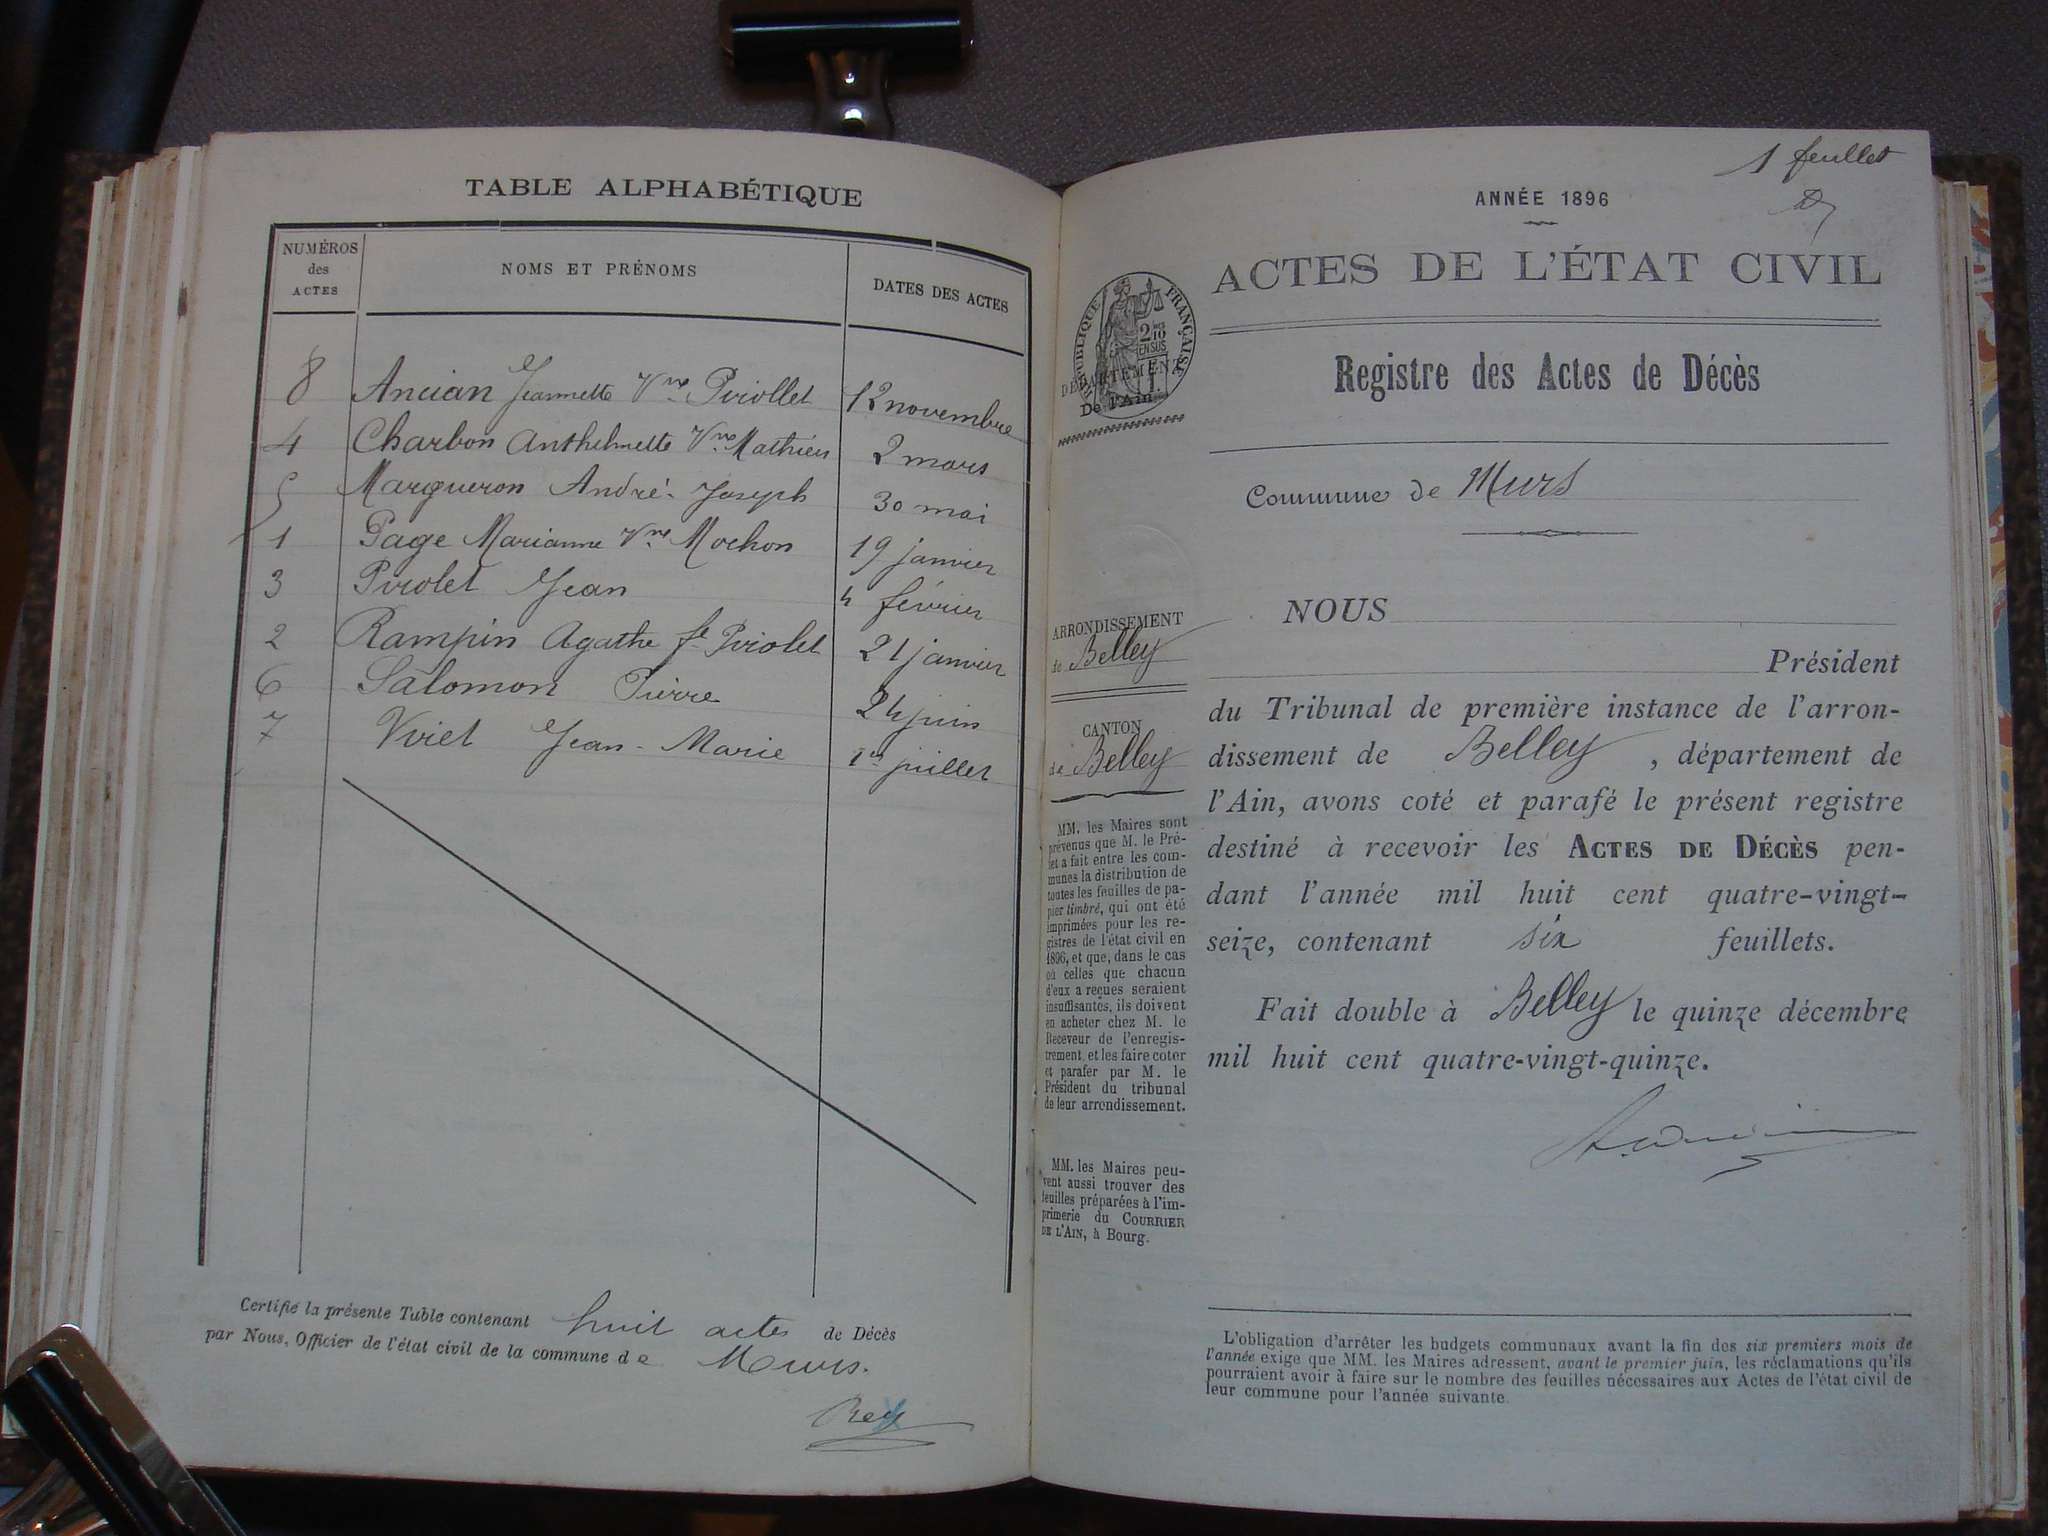 TABLE ALPHABÉTIQUE
NUMÉROS des ACTES NOMS ET PRÉNOMS DATES DES ACTES
8 Ancian Jeannette Vve Pviollet 12 novembre
4 Charbon Anthelmette Vve Mathieu 2 mars
5 Margueron André-Joseph 30 mai
1 Page Marianne Vve Mochon 19 janvier
3 Pviolet Jean 4 février
2 Rampin Agathe fe Pviolet 21 janvier
6 Salomon Pierre 24 juin
7 Vviet Jean-Marie 1er juillet
Certifié la présente Table contenant huit actes de Décès
par Nous, Officier de l'état civil de la commune de Murs.
Rey
1 feuillet
ANNÉE 1896
ACTES DE L'ÉTAT CIVIL
RÉPUBLIQUE FRANÇAISE
2/10 EN SUS
DÉPARTEMENT
De l'Ain
Registre des Actes de Décès
Commune de Murs
ARRONDISSEMENT
de Belley
CANTON
de Belley
MM. les Maires sont
prévenus que M. le Pré-
fet a fait entre les com-
munes la distribution de
toutes les feuilles de pa-
pier timbré, qui ont été
imprimées pour les re-
gistres de l'état civil en
1896, et que, dans le cas
où celles que chacun
d'eux a reçues seraient
insuffisantes, ils doivent
en acheter chez M. le
Receveur de l'enregis-
trement, et les faire coter
et parafer par M. le
Président du tribunal
de leur arrondissement.
MM. les Maires peu-
vent aussi trouver des
feuilles préparées à l'im-
primerie du COURRIER
DE L'AIN, à Bourg.
NOUS
Président
du Tribunal de première instance de l'arron-
dissement de Belley, département de
l'Ain, avons coté et parafé le présent registre
destiné à recevoir les ACTES DE DÉCÈS pen-
dant l'année mil huit cent quatre-vingt-
seize, contenant six feuillets.
Fait double à Belley le quinze décembre
mil huit cent quatre-vingt-quinze.
L'obligation d'arrêter les budgets communaux avant la fin des six premiers mois de
l'année exige que MM. les Maires adressent, avant le premier juin, les réclamations qu'ils
pourraient avoir à faire sur le nombre des feuilles nécessaires aux Actes de l'état civil de
leur commune pour l'année suivante.